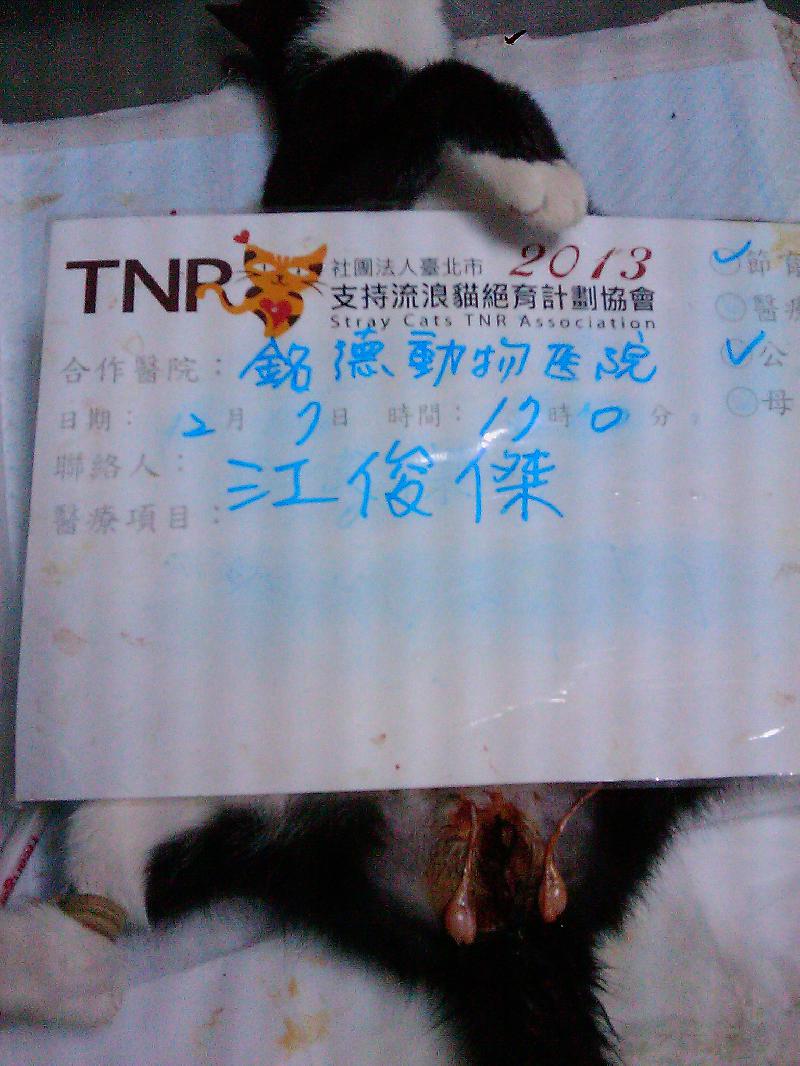 TNR 社團法人臺北市 2013
支持流浪貓絕育計劃協會
Stray Cats TNR Association
合作醫院：銘德動物医院
日期：12月7日 時間：17時0分
聯絡人：江俊傑
醫療項目：
✓節育
醫療
✓公
母